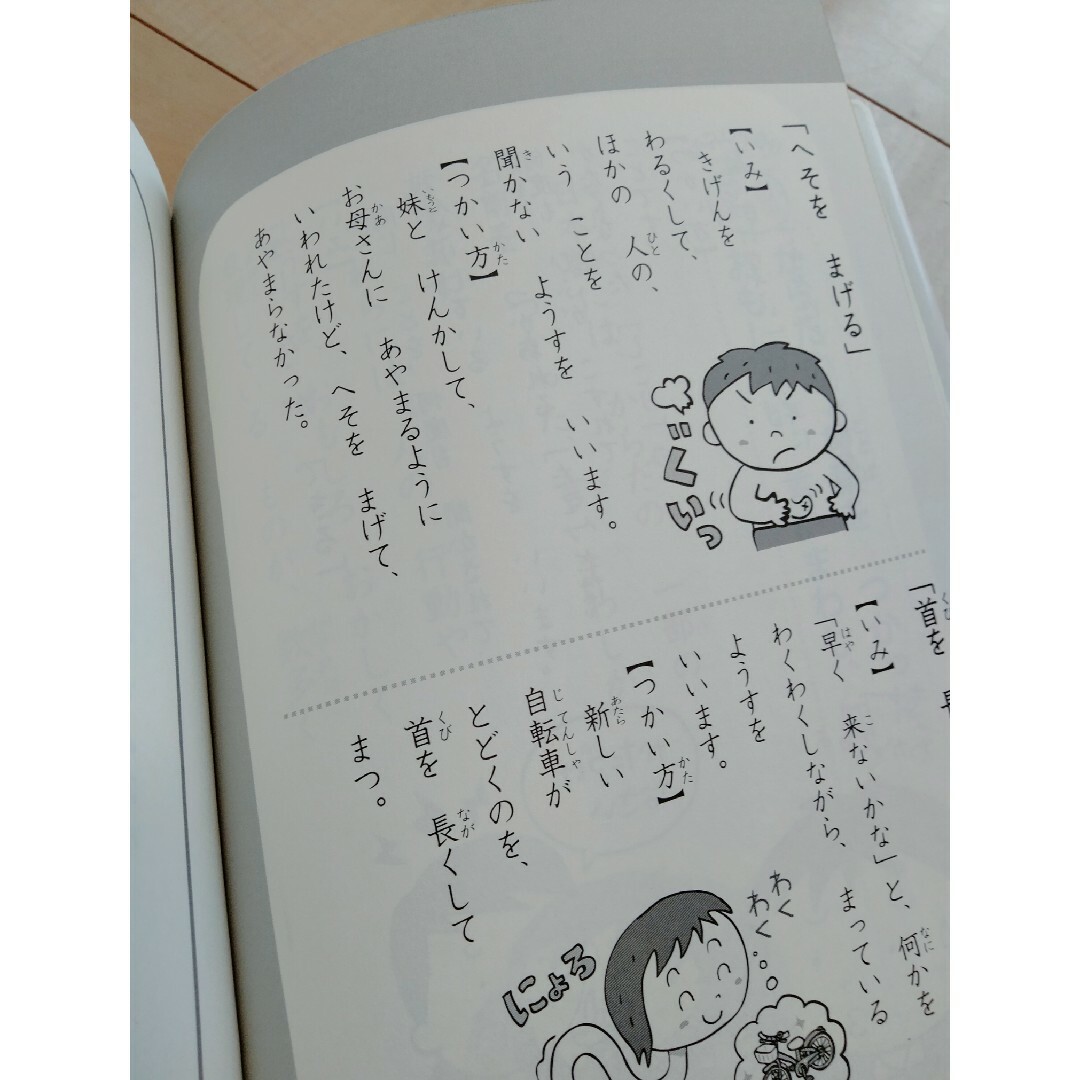 「へそを まげる」
【いみ】
きげんを
わるくして、
ほかの 人の、
いう ことを
聞かない ようすを いいます。
【つかい方】
妹と けんかして、
お母さんに あやまるように
いわれたけど、へそを まげて、
あやまらなかった。
ぐいっ
「首を 長
【いみ】
「早く 来ないかな」と、何かを
わくわくしながら、まっている
ようすを
いいます。
【つかい方】
新しい
自転車が
とどくのを、
首を 長くして
まつ。
わく
わく
にょろ